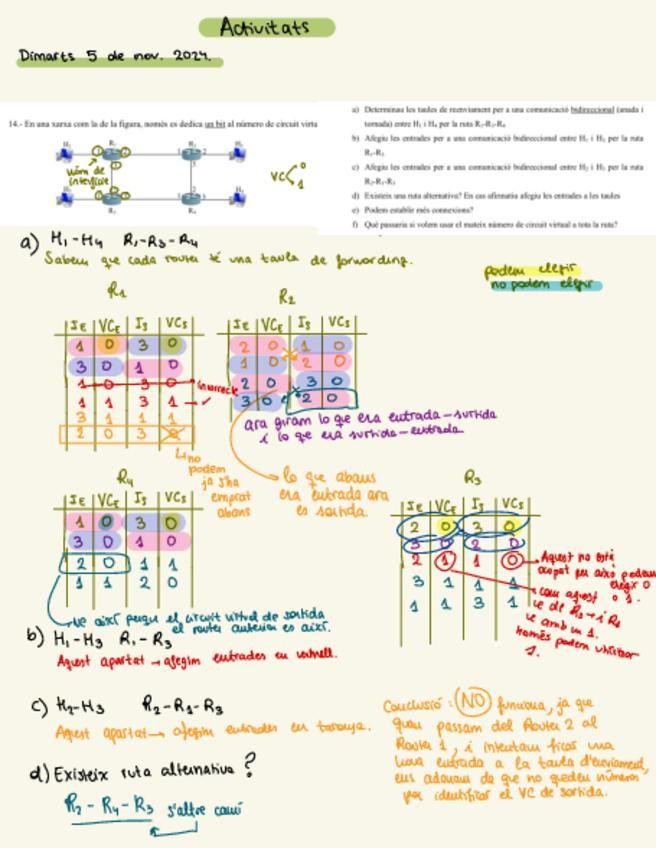 Activitats
Dimarts 5 de nov. 2024.
14.- En una xarxa com la de la figura, només es dedica un bit al número de circuit virtu
núm de
interfície
VC 0
1
a) Determinau les taules de reenviament per a una comunicació bidireccional (anada i
tornada) entre H1 i H4 per la ruta R1-R3-R4
b) Afegiu les entrades per a una comunicació bidireccional entre H1 i H3 per la ruta
R1-R3
c) Afegiu les entrades per a una comunicació bidireccional entre H2 i H3 per la ruta
R2-R1-R3
d) Existeix una ruta alternativa? En cas afirmatiu afegiu les entrades a les taules
e) Podem establir més connexions?
f) Què passaria si volem usar el mateix número de circuit virtual a tota la ruta?
a) H1-H4 R1-R3-R4
Sabem que cada router té una taula de forwarding.
podem elegir
no podem elegir
R1
IE VCE IS VCS
1 0 3 0
3 0 1 0
1 0 3 0 incorrecte
1 1 3 1
3 1 1 1
2 0 3
no
podem
ja s'ha
emprat
abans
R2
IE VCE IS VCS
2 0 1 0
1 0 2 0
2 0 3 0
3 0 2 0
ara giram lo que era entrada-sortida
i lo que era sortida-entrada
lo que abans
era entrada ara
és sortida.
R4
IE VCE IS VCS
1 0 3 0
3 0 1 0
2 0 1 1
1 1 2 0
ve així perque el circuit virtual de sortida
el router anterior es així.
R3
IE VCE IS VCS
2 0 3 0
3 0 2 0
2 1 1 0
3 1 1 1
1 1 3 1
Aquest no està
ocupat per això podem
elegir 0
o 1.
com aquest
ve de R1 i
ve amb un 1.
només podem utilitzar
1.
b) H1-H3 R1-R3
Aquest apartat → afegim entrades en vermell.
c) H2-H3 R2-R1-R3
Aquest apartat → afegim entrades en taronja.
d) Existeix ruta alternativa?
R2-R4-R3 s'altre camí
Conclusió: NO funciona, ja que
quan passam del Router 2 al
Router 1, i intentam ficar una
nova entrada a la taula d'enviament,
ens adonam de que no queden números
per identificar el VC de sortida.